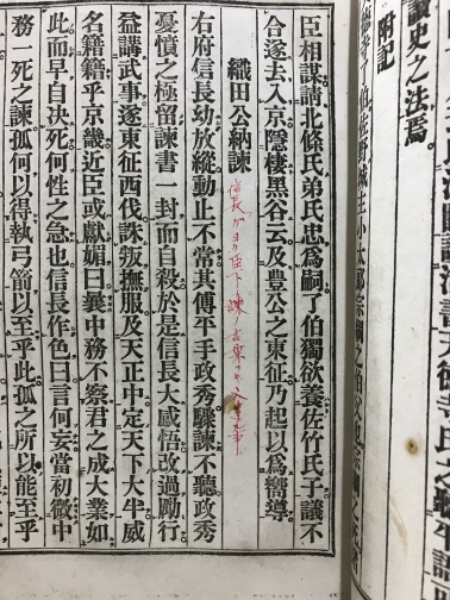 讀史之法焉。
附記
臣相謀請北條氏弟氏忠爲嗣了伯獨欲養佐竹氏子議不
合遂去入京隱棲黑谷云及豐公之東征乃起以爲嚮導
織田公納諫
信長ガヨク臣下ノ諫ノ言葉
右府信長幼放縱動止不常其傅平手政秀驟諫不聽政秀
憂憤之極留諫書一封而自殺於是信長大感悟改過勵行
益講武事遂東征西伐誅叛撫服及天正中定天下大半威
名籍籍乎京畿近臣或獻媚曰曩中務不察君之成大業如
此而早自決死何性之急也信長作色曰言何妄當初微中
務一死之諫孤何以得執弓箭以至乎此孤之所以能至乎